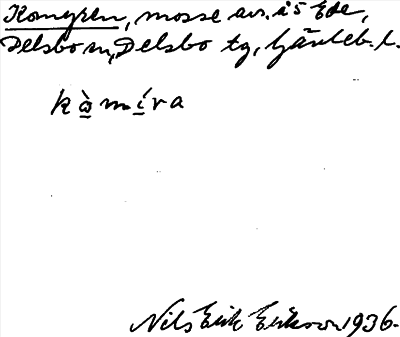 Komyren, mosse av. å 5 Ede,
Delsbo sn, Delsbo tg, Gävleb. l.
kò̱mí̱ra
Nils Erik Erikson 1936.